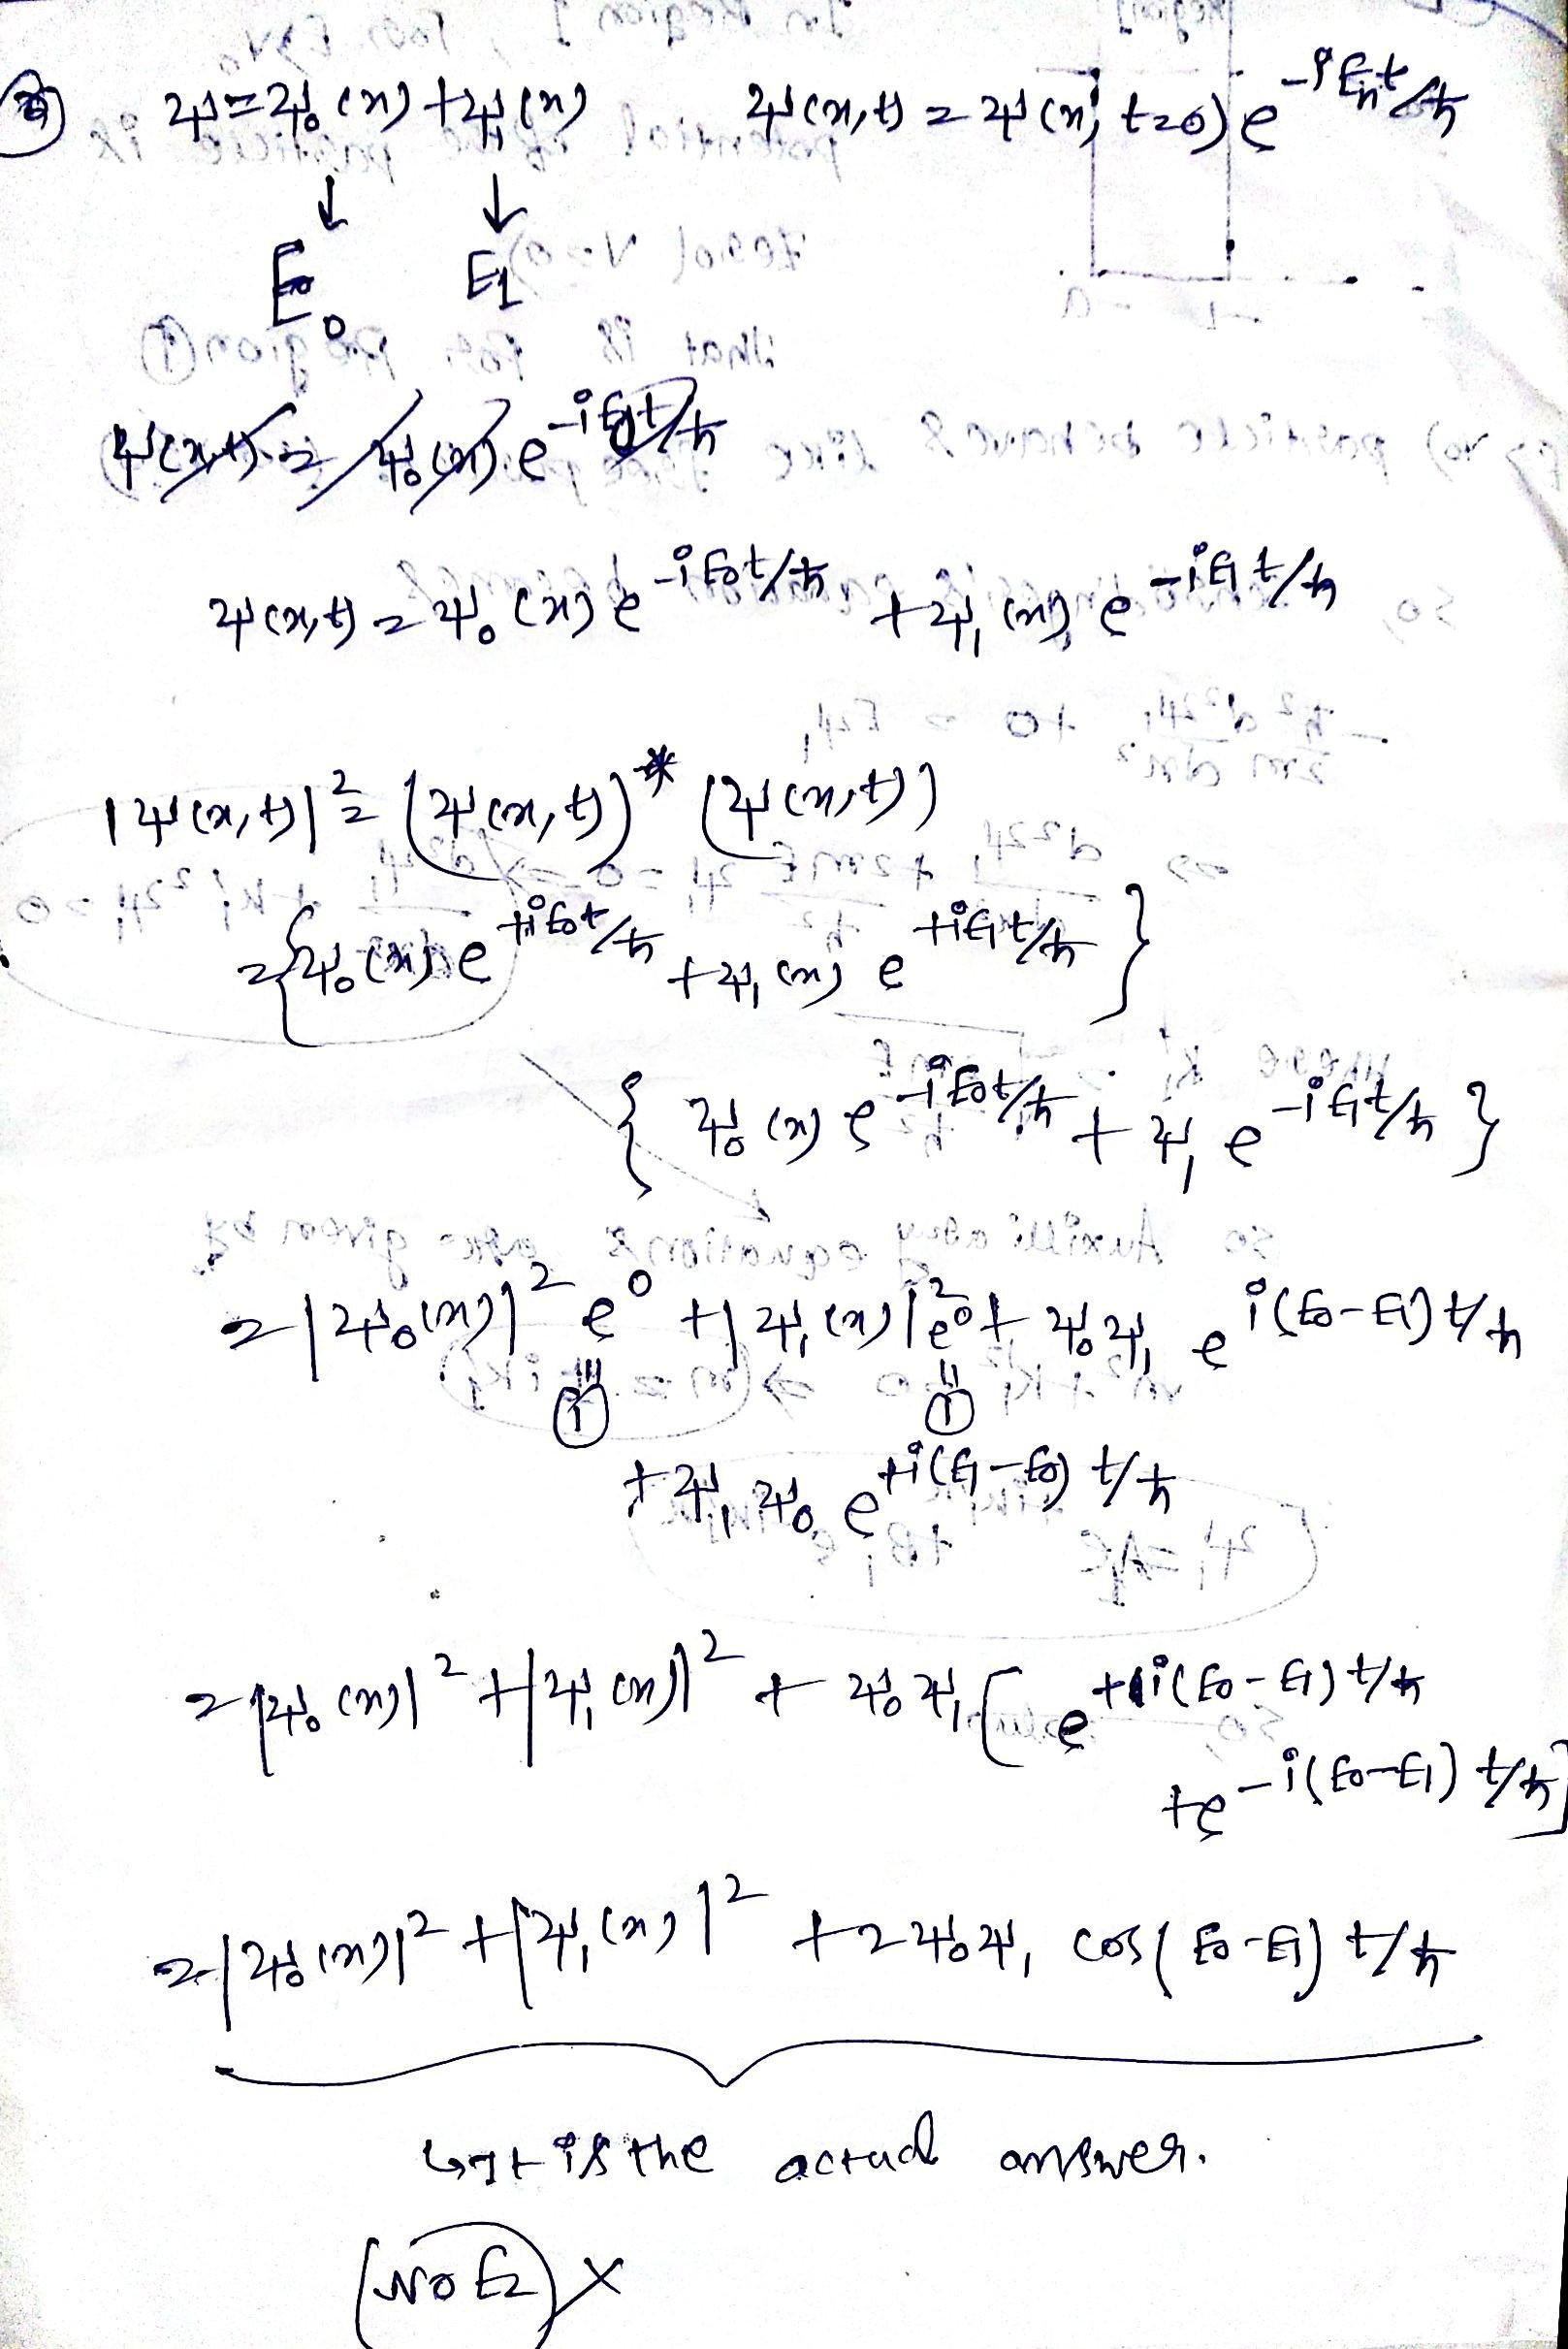 ψ = ψ₀(x) + ψ₁(x)    ψ(x,t) = ψ(x, t=0) e^{-iEₙt/ħ}
↓ ↓
E₀ E₁
ψ(x,t) = ψ₀(x) e^{-iE₀t/ħ}
ψ(x,t) = ψ₀(x) e^{-iE₀t/ħ} + ψ₁(x) e^{-iE₁t/ħ}
|ψ(x,t)|² = (ψ(x,t))* (ψ(x,t))
= {ψ₀(x) e^{+iE₀t/ħ} + ψ₁(x) e^{+iE₁t/ħ}}
{ψ₀(x) e^{-iE₀t/ħ} + ψ₁ e^{-iE₁t/ħ}}
= |ψ₀(x)|² e⁰ + |ψ₁(x)|² e⁰ + ψ₀ψ₁ e^{i(E₀-E₁)t/ħ}
1 1
+ ψ₁ψ₀ e^{+i(E₁-E₀)t/ħ}
= |ψ₀(x)|² + |ψ₁(x)|² + ψ₀ψ₁ [e^{+i(E₀-E₁)t/ħ}
+ e^{-i(E₀-E₁)t/ħ}]
= |ψ₀(x)|² + |ψ₁(x)|² + 2ψ₀ψ₁ cos(E₀-E₁)t/ħ
↳ It is the actual answer.
(No E₂) ×